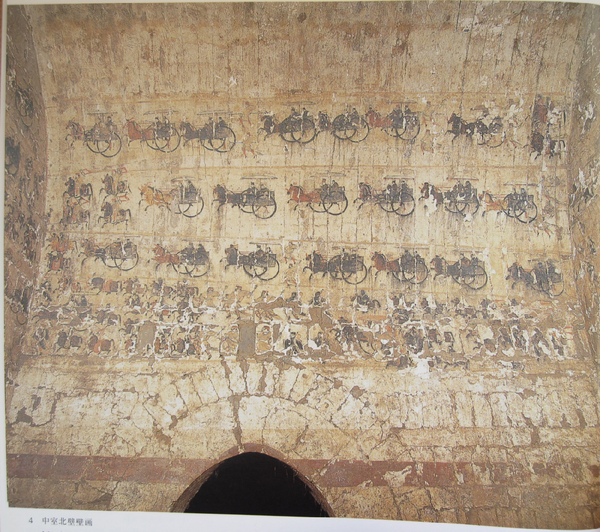 4 中室北壁壁画